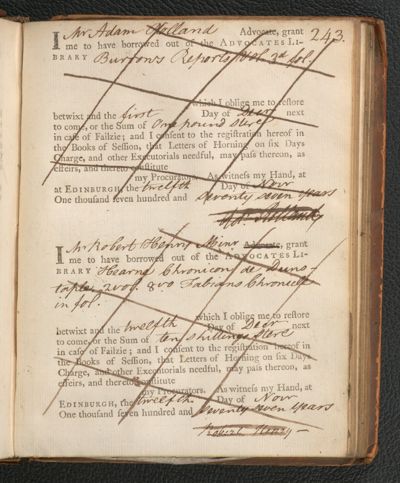 243.
I Mr Adam Holland Advocate, grant
me to have borrowed out of the ADVOCATES LI-
BRARY Burrows Reports Vol. 2d fol.
which I oblige me to restore
betwixt and the first Day of Decr next
to come, or the Sum of One pound sterg
in case of Failzie; and I consent to the registration hereof in
the Books of Session, that Letters of Horning on six Days
Charge, and other Executorials needful, may pass thereon, as
effeirs, and thereto constitute
my Procurators. As witness my Hand, at
at EDINBURGH, the twelfth Day of Novr
One thousand seven hundred and Seventy seven years
Ad. Holland
I Mr Robert Henry Minr Advocate, grant
me to have borrowed out of the ADVOCATES LI-
BRARY Hearne Chronicon de Duns-
taple 2 vol. 8vo Fabians Chronicle
in fol.
which I oblige me to restore
betwixt and the twelfth Day of Decr next
to come, or Sum of ten shillings sterg
in case of Failzie; and I consent to the registration hereof in
the Books of Session, that Letters of Horning on six Days
Charge, and other Executorials needful, may pass thereon, as
effeirs, and thereto constitute
my Procurators. As witness my Hand, at
EDINBURGH, the twelfth Day of Novr
One thousand seven hundred and Seventy seven years
Robert Henry